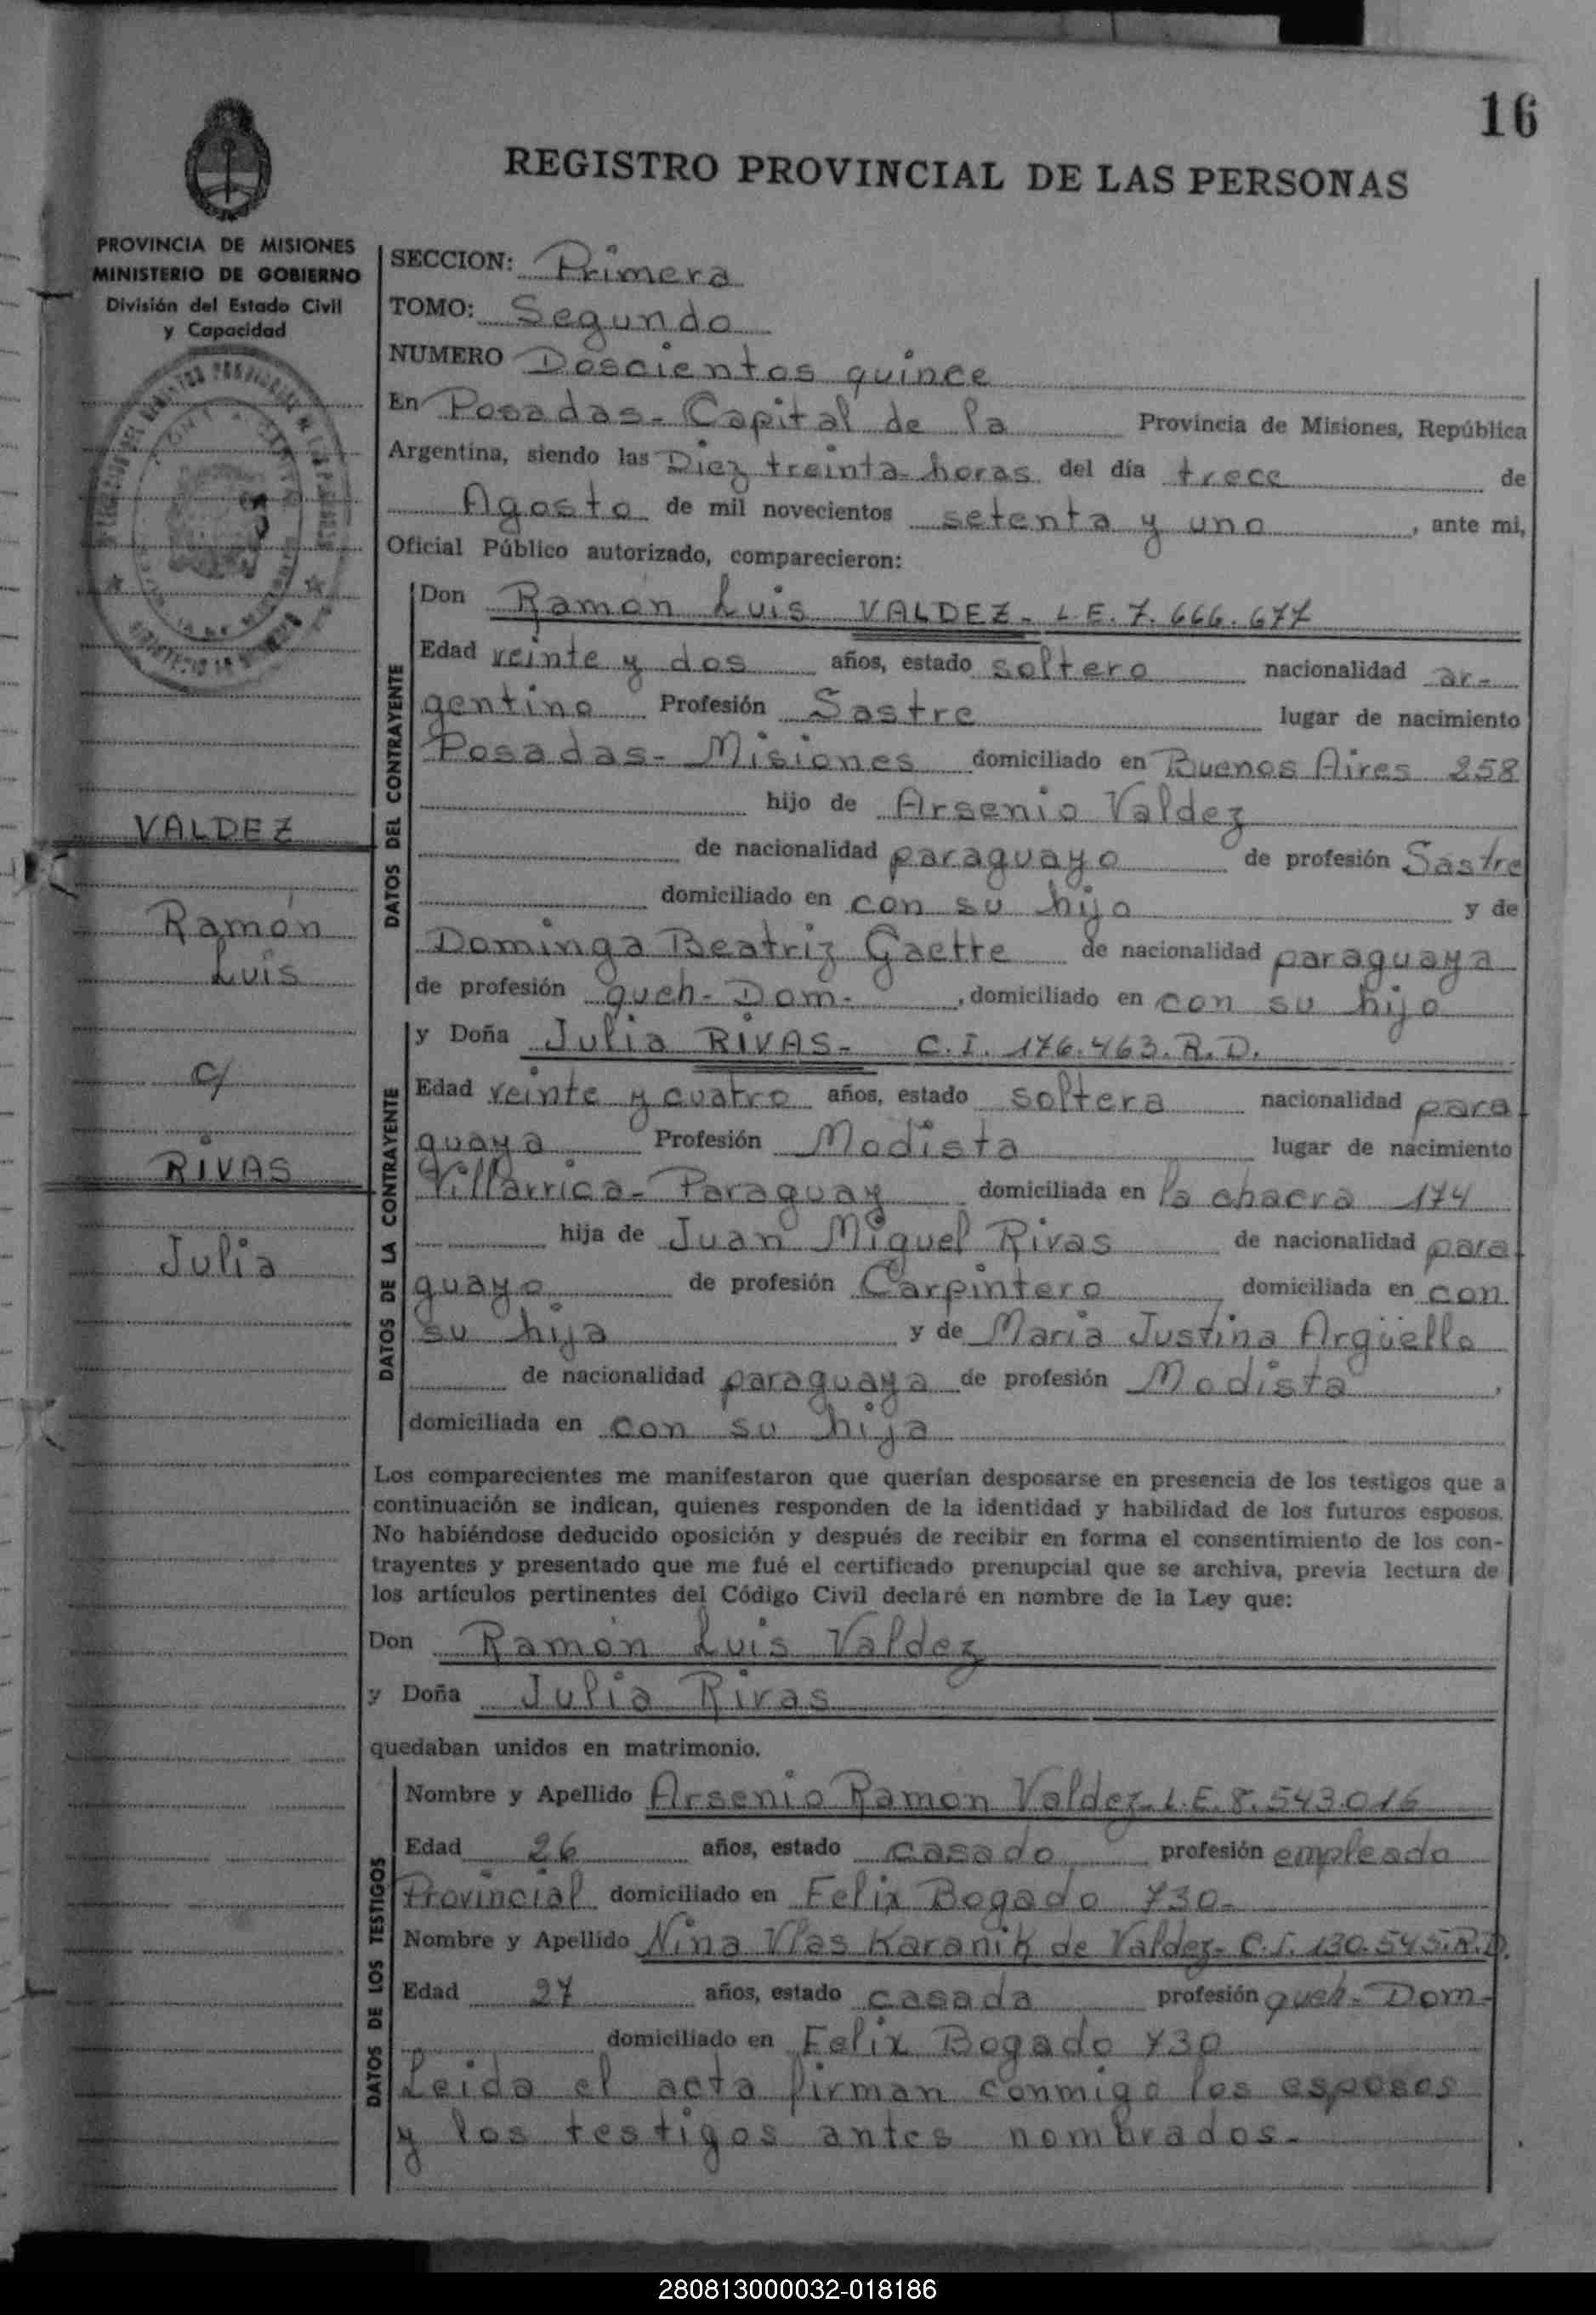 16
REGISTRO PROVINCIAL DE LAS PERSONAS
PROVINCIA DE MISIONES
MINISTERIO DE GOBIERNO
División del Estado Civil
y Capacidad
VALDEZ
Ramón
Luis
c/
RIVAS
Julia
SECCION: Primera
TOMO: Segundo
NUMERO Doscientos quince
En Posadas - Capital de la Provincia de Misiones, República
Argentina, siendo las Diez treinta horas del día trece de
Agosto de mil novecientos setenta y uno, ante mi,
Oficial Público autorizado, comparecieron:
DATOS DEL CONTRAYENTE
Don Ramón Luis VALDEZ - L.E. 7.666.677
Edad veinte y dos años, estado soltero nacionalidad ar-
gentino Profesión Sastre lugar de nacimiento
Posadas - Misiones domiciliado en Buenos Aires 258
hijo de Arsenio Valdez
de nacionalidad paraguayo de profesión Sastre
domiciliado en con su hijo y de
Dominga Beatriz Gaette de nacionalidad paraguaya
de profesión queh - Dom -, domiciliado en con su hijo
DATOS DE LA CONTRAYENTE
y Doña Julia RIVAS - C.I. 176.463. R.D.
Edad veinte y cuatro años, estado soltera nacionalidad para
guaya Profesión Modista lugar de nacimiento
Villarrica - Paraguay domiciliada en la chacra 174
hija de Juan Miguel Rivas de nacionalidad para
guayo de profesión Carpintero, domiciliada en con
su hija y de Maria Justina Argüello
de nacionalidad paraguaya de profesión Modista,
domiciliada en con su hija
Los comparecientes me manifestaron que querían desposarse en presencia de los testigos que a
continuación se indican, quienes responden de la identidad y habilidad de los futuros esposos.
No habiéndose deducido oposición y después de recibir en forma el consentimiento de los con-
trayentes y presentado que me fué el certificado prenupcial que se archiva, previa lectura de
los artículos pertinentes del Código Civil declaré en nombre de la Ley que:
Don Ramón Luis Valdez
y Doña Julia Rivas
quedaban unidos en matrimonio.
DATOS DE LOS TESTIGOS
Nombre y Apellido Arsenio Ramon Valdez L.E. 8.543.016
Edad 26 años, estado casado profesión empleado
Provincial domiciliado en Felix Bogado 730 -
Nombre y Apellido Nina Vlas Karanik de Valdez - C.I. 130.545. R.D.
Edad 27 años, estado casada profesión queh - Dom -
domiciliado en Felix Bogado 730
Leida el acta firman conmigo los esposos
y los testigos antes nombrados -
280813000032-018186